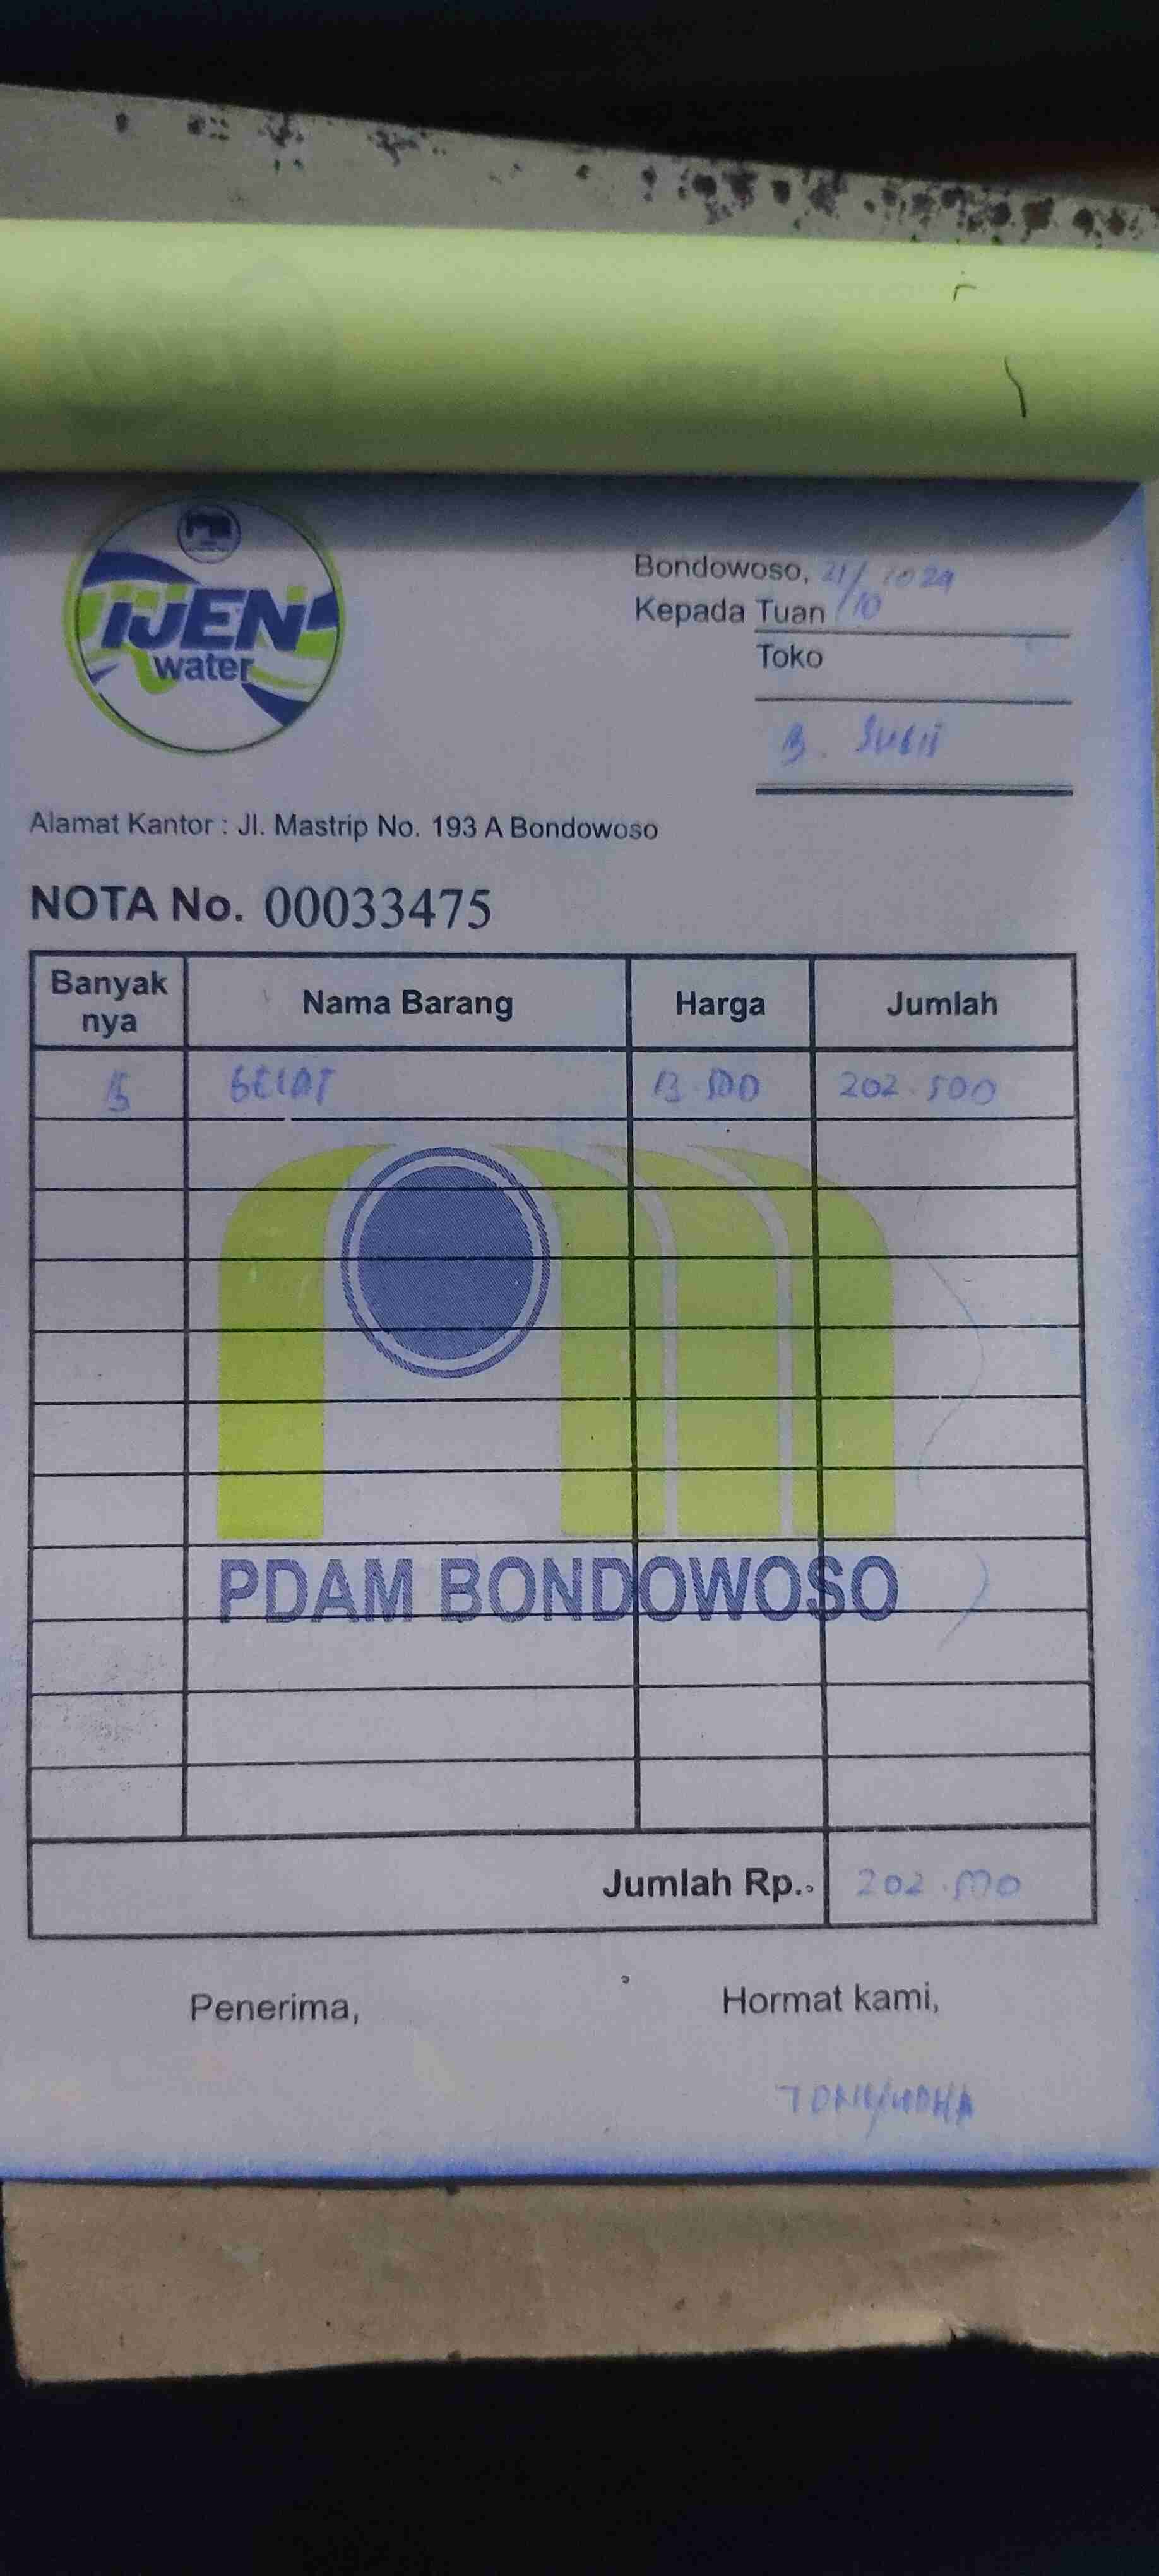 IJEN
water
Bondowoso, 21/10 2024
Kepada Tuan
Toko
B. Susii
Alamat Kantor : Jl. Mastrip No. 193 A Bondowoso
NOTA No. 00033475
Banyak nya Nama Barang Harga Jumlah
15 GELAS 13.500 202.500
PDAM BONDOWOSO
Jumlah Rp. 202.500
Penerima, Hormat kami,